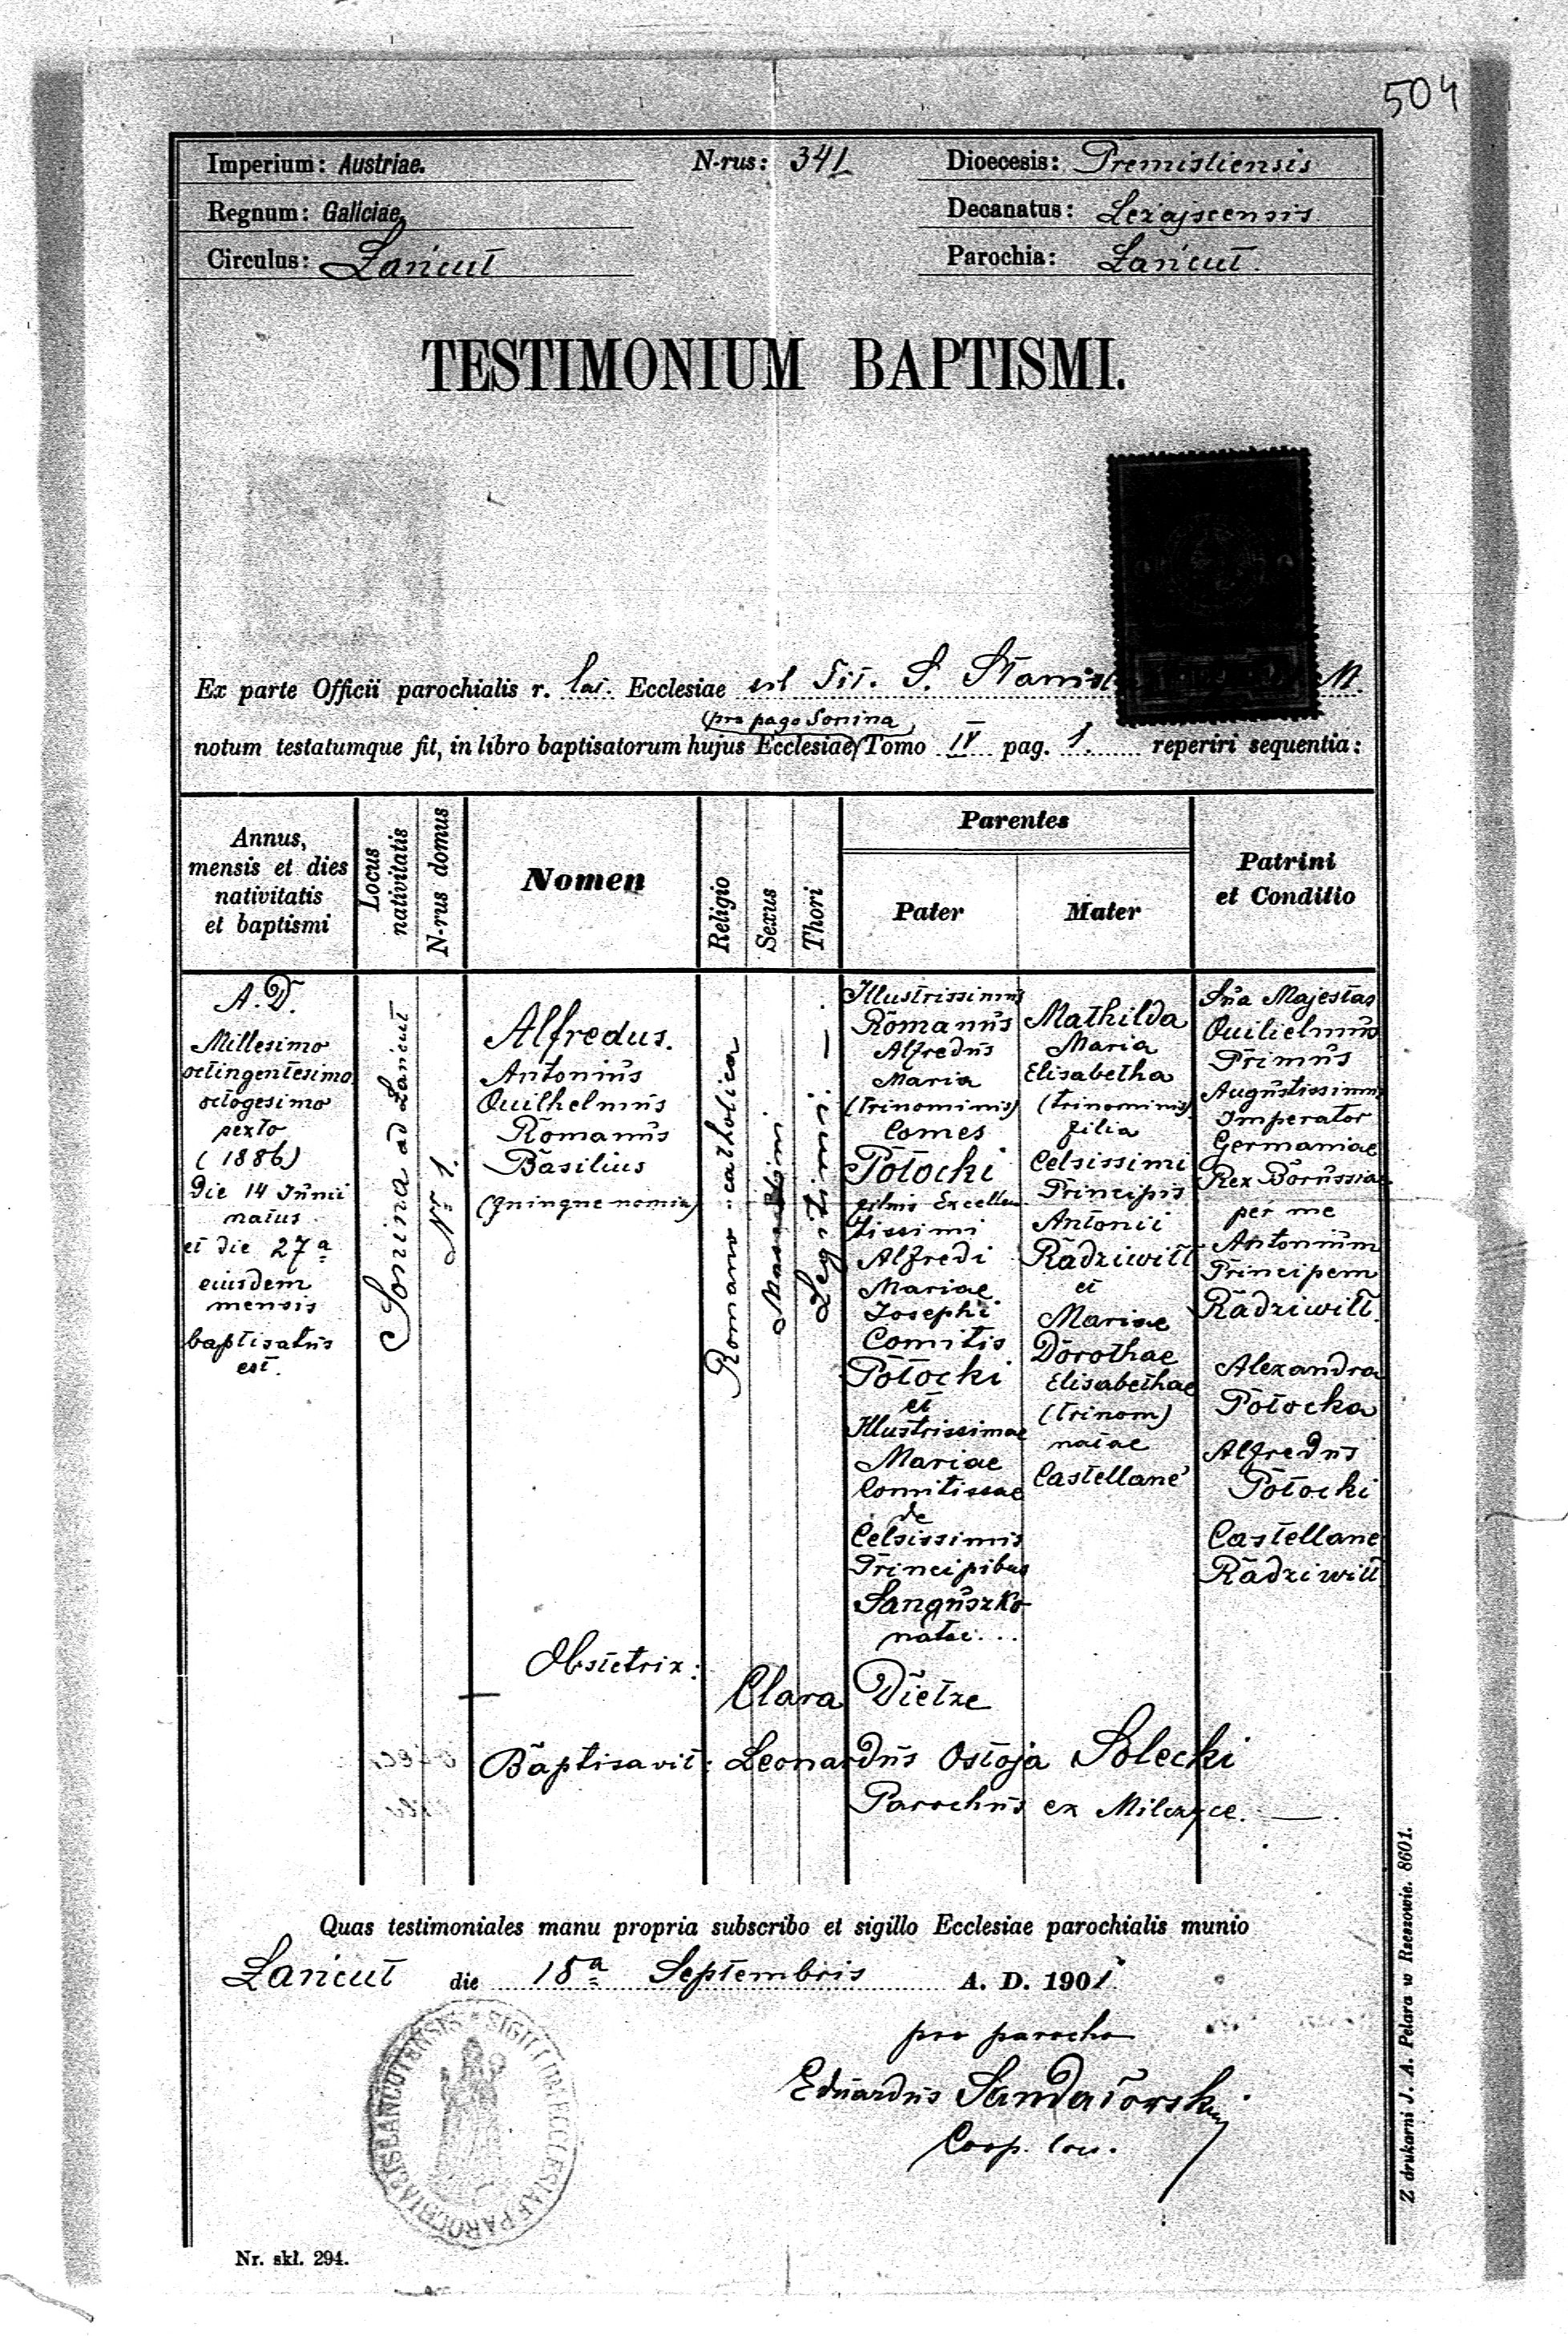 504
Imperium: Austriae. N-rus: 341 Dioecesis: Premisliensis
Regnum: Galiciae. Decanatus: Leżajscensis
Circulus: Łańcut Parochia: Łańcut.
TESTIMONIUM BAPTISMI.
Ex parte Officii parochialis r. lat. Ecclesiae sub Tit. S. Stanisl M.
(pro pago Sonina)
notum testatumque fit, in libro baptisatorum hujus Ecclesiae Tomo IV pag. 1. reperiri sequentia:
Annus,
mensis et dies
nativitatis
et baptismi
Locus
nativitatis
N-rus domus
Nomen
Religio
Sexus
Thori
Parentes
Pater
Mater
Patrini
et Conditio
A. D.
Millesimo
octingentesimo
octogesimo
sexto
(1886)
die 14 Junii
natus
et die 27a
eiusdem
mensis
baptisatus
est.
Sonina ad Łańcut
Nr 1.
Alfredus.
Antonius
Quilhelmus
Romanus
Basilius
(Quinque nomin)
Romano-catholica
Masculini
Legitimi. —
Illustrissimus
Romanus
Alfredus
Maria
(trinominis)
Comes
Potocki
filius Excellen
tissimi
Alfredi
Mariae
Josephi
Comitis
Potocki
et
Illustrissimae
Mariae
Comitissae
de
Celsissimis
Principibus
Sanguszko
natae...
Mathilda
Maria
Elisabetha
(trinominis)
filia
Celsissimi
Principis
Antonii
Radziwiłł
et
Mariae
Dorothae
Elisabethae
(trinom)
natae
Castellane
Sua Majestas
Quilielmus
Primus
Augustissimus
Imperator
Germaniae
Rex Borussiae
per me
Antonium
Principem
Radziwiłł.
Alexandra
Potocka
Alfredus
Potocki
Castellane
Radziwiłł
Obstetrix:
Clara Dietze
Baptisavit: Leonardus Ostoja Solecki
Parochus ex Milczyce. —
Quas testimoniales manu propria subscribo et sigillo Ecclesiae parochialis munio
Łańcut die 18a Septembris A. D. 1901
pro parocho
Eduardus Sandałowski
Coop. loci.
SIGILLUM ECCLESIAE PAROCHIARIS LANCOTENSIS
Nr. skł. 294.
Z drukarni J. A. Pelara w Rzeszowie. 8601.